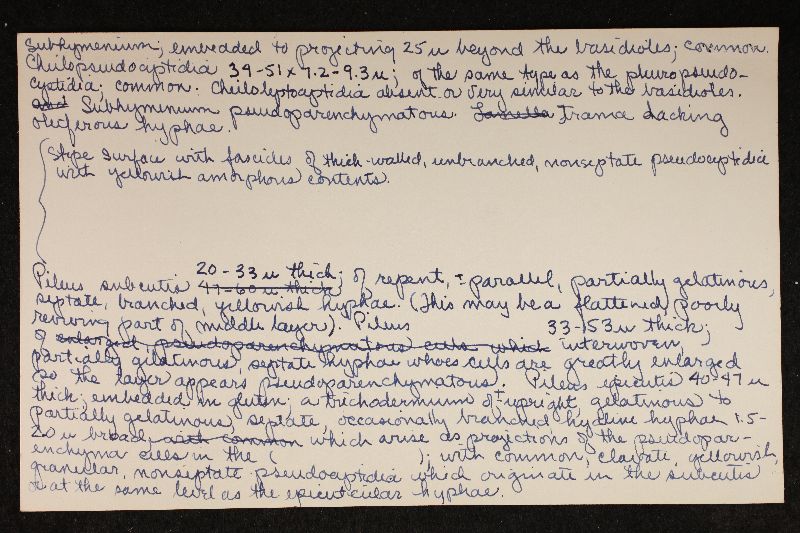 Subhymenium; embedded to projecting 25 u beyond the basidioles; common.
Cheilopseudocystidia 39-51 x 7.2-9.3 u; of the same type as the pleuropseudo-
cystidia; common. Cheiloleptocystidia absent or very similar to the basidioles.
and Subhymenium pseudoparenchymatous. Lamella Trama lacking
oleiferous hyphae.
Stipe surface with fascicles of thick-walled, unbranched, nonseptate pseudocystidia
with yellowish amorphous contents.
20-33 u thick;
Pileus subcutis 47-60 u thick; of repent, ± parallel, partially gelatinous,
septate, branched, yellowish hyphae. (This may be a flattened, poorly
reviving part of middle layer). Pileus 33-153 u thick;
of enlarged pseudoparenchymatous cells which interwoven,
partially gelatinous, septate hyphae whoes cells are greatly enlarged
so the layer appears pseudoparenchymatous. Pileus epicutis 40-47 u
thick; embedded in gluten; a trichodermium of ± upright, gelatinous to
partially gelatinous, septate, occasionally branched hyaline hyphae 1.5-
20 u broad, with common which arise as projections of the pseudopar-
enchyma cells in the ( ); with common, clavate, yellowish,
granular, nonseptate pseudocystidia which originate in the subcutis
or at the same level as the epicuticular hyphae.